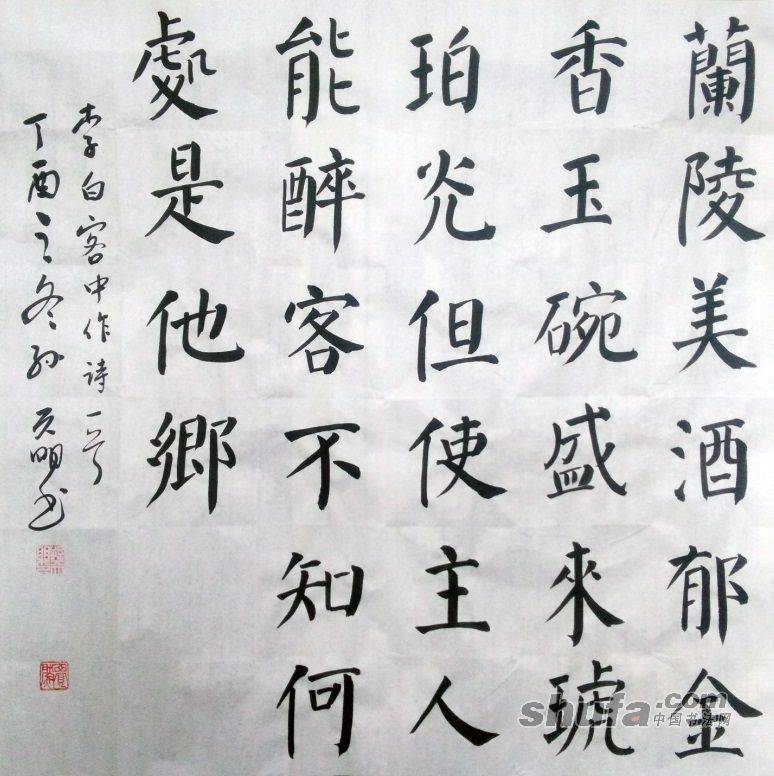 蘭陵美酒郁金
香玉碗盛來琥
珀光但使主人
能醉客不知何
處是他鄉
李白客中作詩一首
丁酉之冬孙
明书
shufa.com
中国书法网